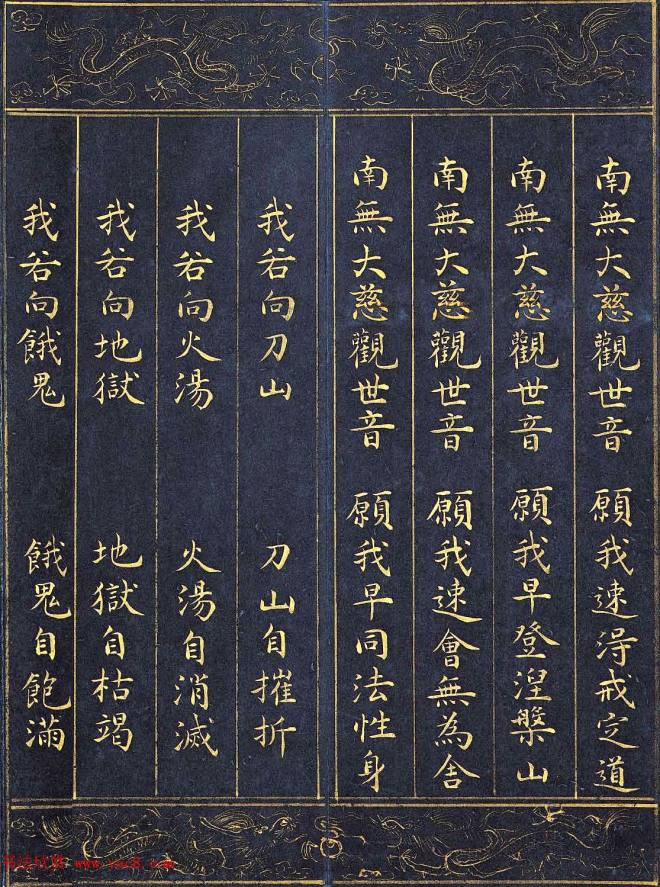 南無大慈觀世音 願我速淂戒定道
南無大慈觀世音 願我早登涅槃山
南無大慈觀世音 願我速會無為舍
南無大慈觀世音 願我早同法性身
我若向刀山 刀山自摧折
我若向火湯 火湯自消滅
我若向地獄 地獄自枯竭
我若向餓鬼 餓鬼自飽滿